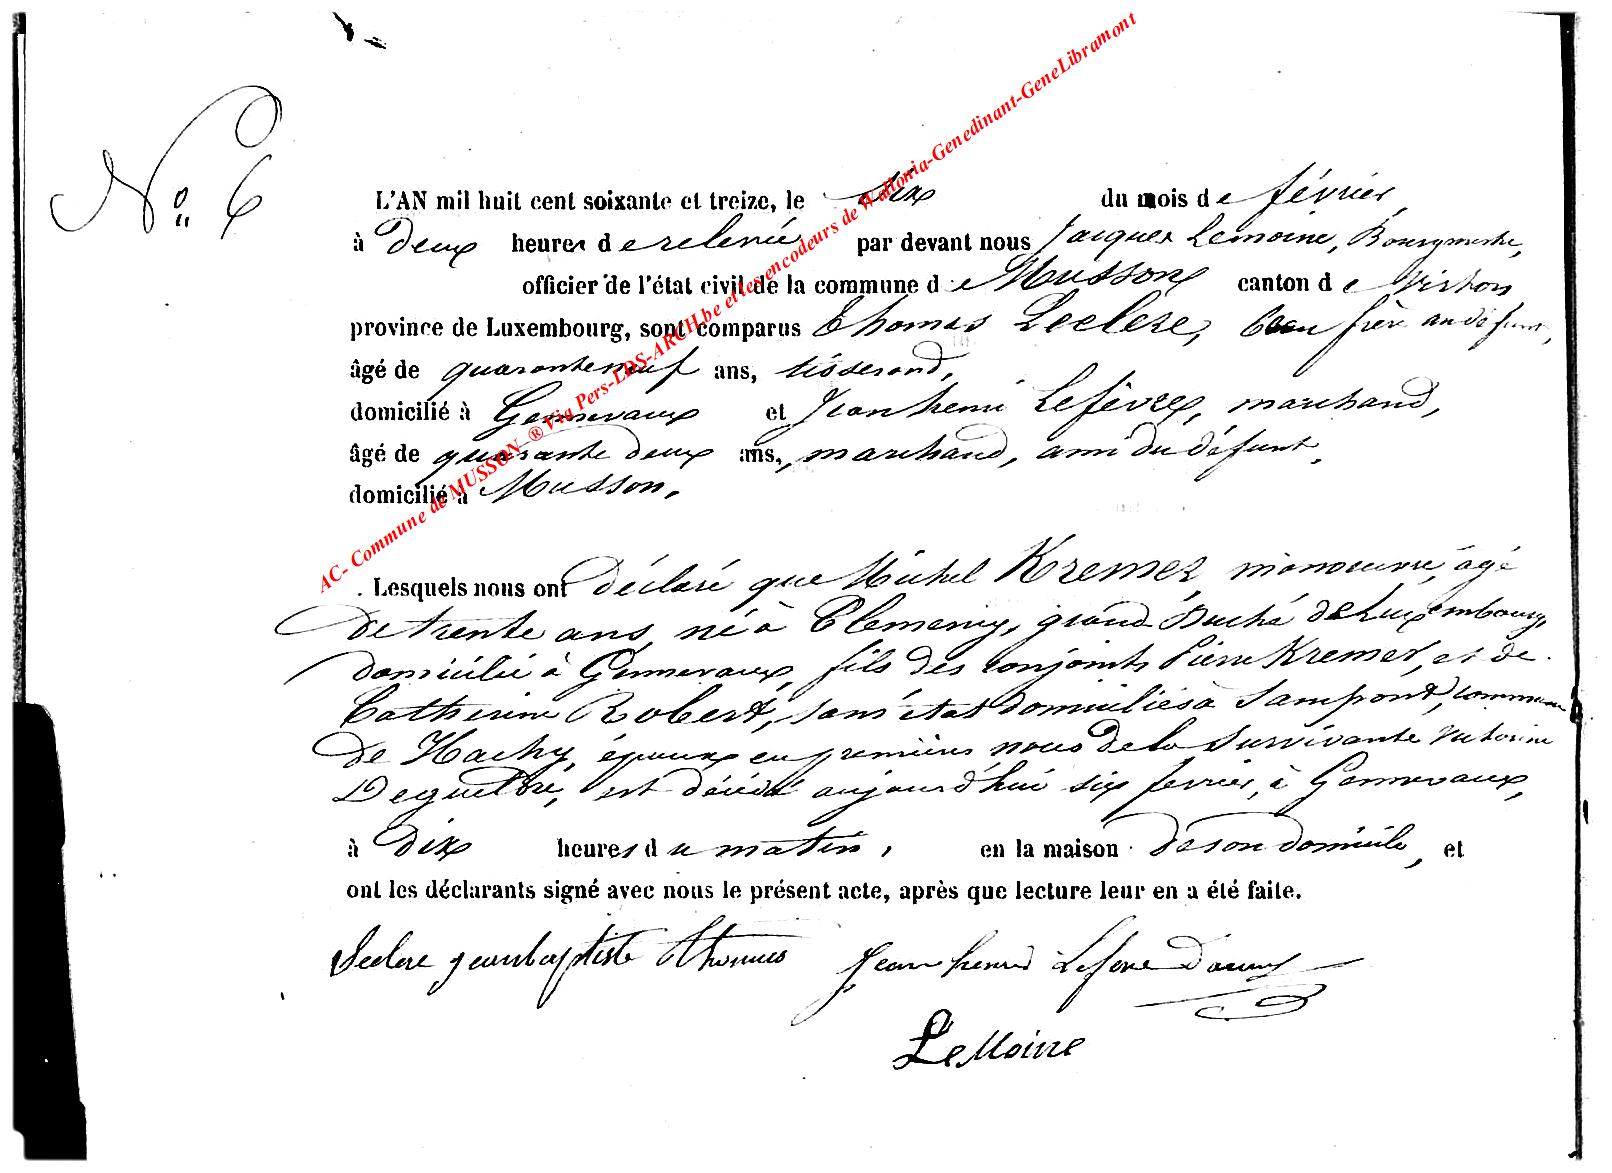 No 6
L'AN mil huit cent soixante et treize, le six du mois de février,
à deux heures de relevée par devant nous Jacques Lemoine, Bourgmestre,
officier de l'état civil de la commune de Musson canton de Virton
province de Luxembourg, sont comparus Thomas Leclère, beau frère au défunt,
âgé de quaranteneuf ans, tisserand,
domicilié à Gennevaux et Jean henri Lefèvre, marchand,
âgé de quarante deux ans, marchand, ami du défunt,
domicilié à Musson.
Lesquels nous ont déclaré que Michel Kremer, manoeuvre, âgé
de trente ans, né à Clemency, grand Duché de Luxembourg,
domicilié à Gennevaux, fils des conjoints Pierre Kremer, et de
Catherine Robert, sans état domiciliés à Sampont, commune
de Hachy, époux en premières noces de la survivante Victorine
Degueldre, est décédé aujourd'hui six fevrier, à Gennevaux,
à dix heures du matin, en la maison de son domicile, et
ont les déclarants signé avec nous le présent acte, après que lecture leur en a été faite.
Leclere jeanbaptiste thomas Jean henri Lefevre
LeMoine
AC- Commune de MUSSON ® Via Pers-LDS-ARCH.be et les encodeurs de Wallonia-Genedinant-GeneLibramont